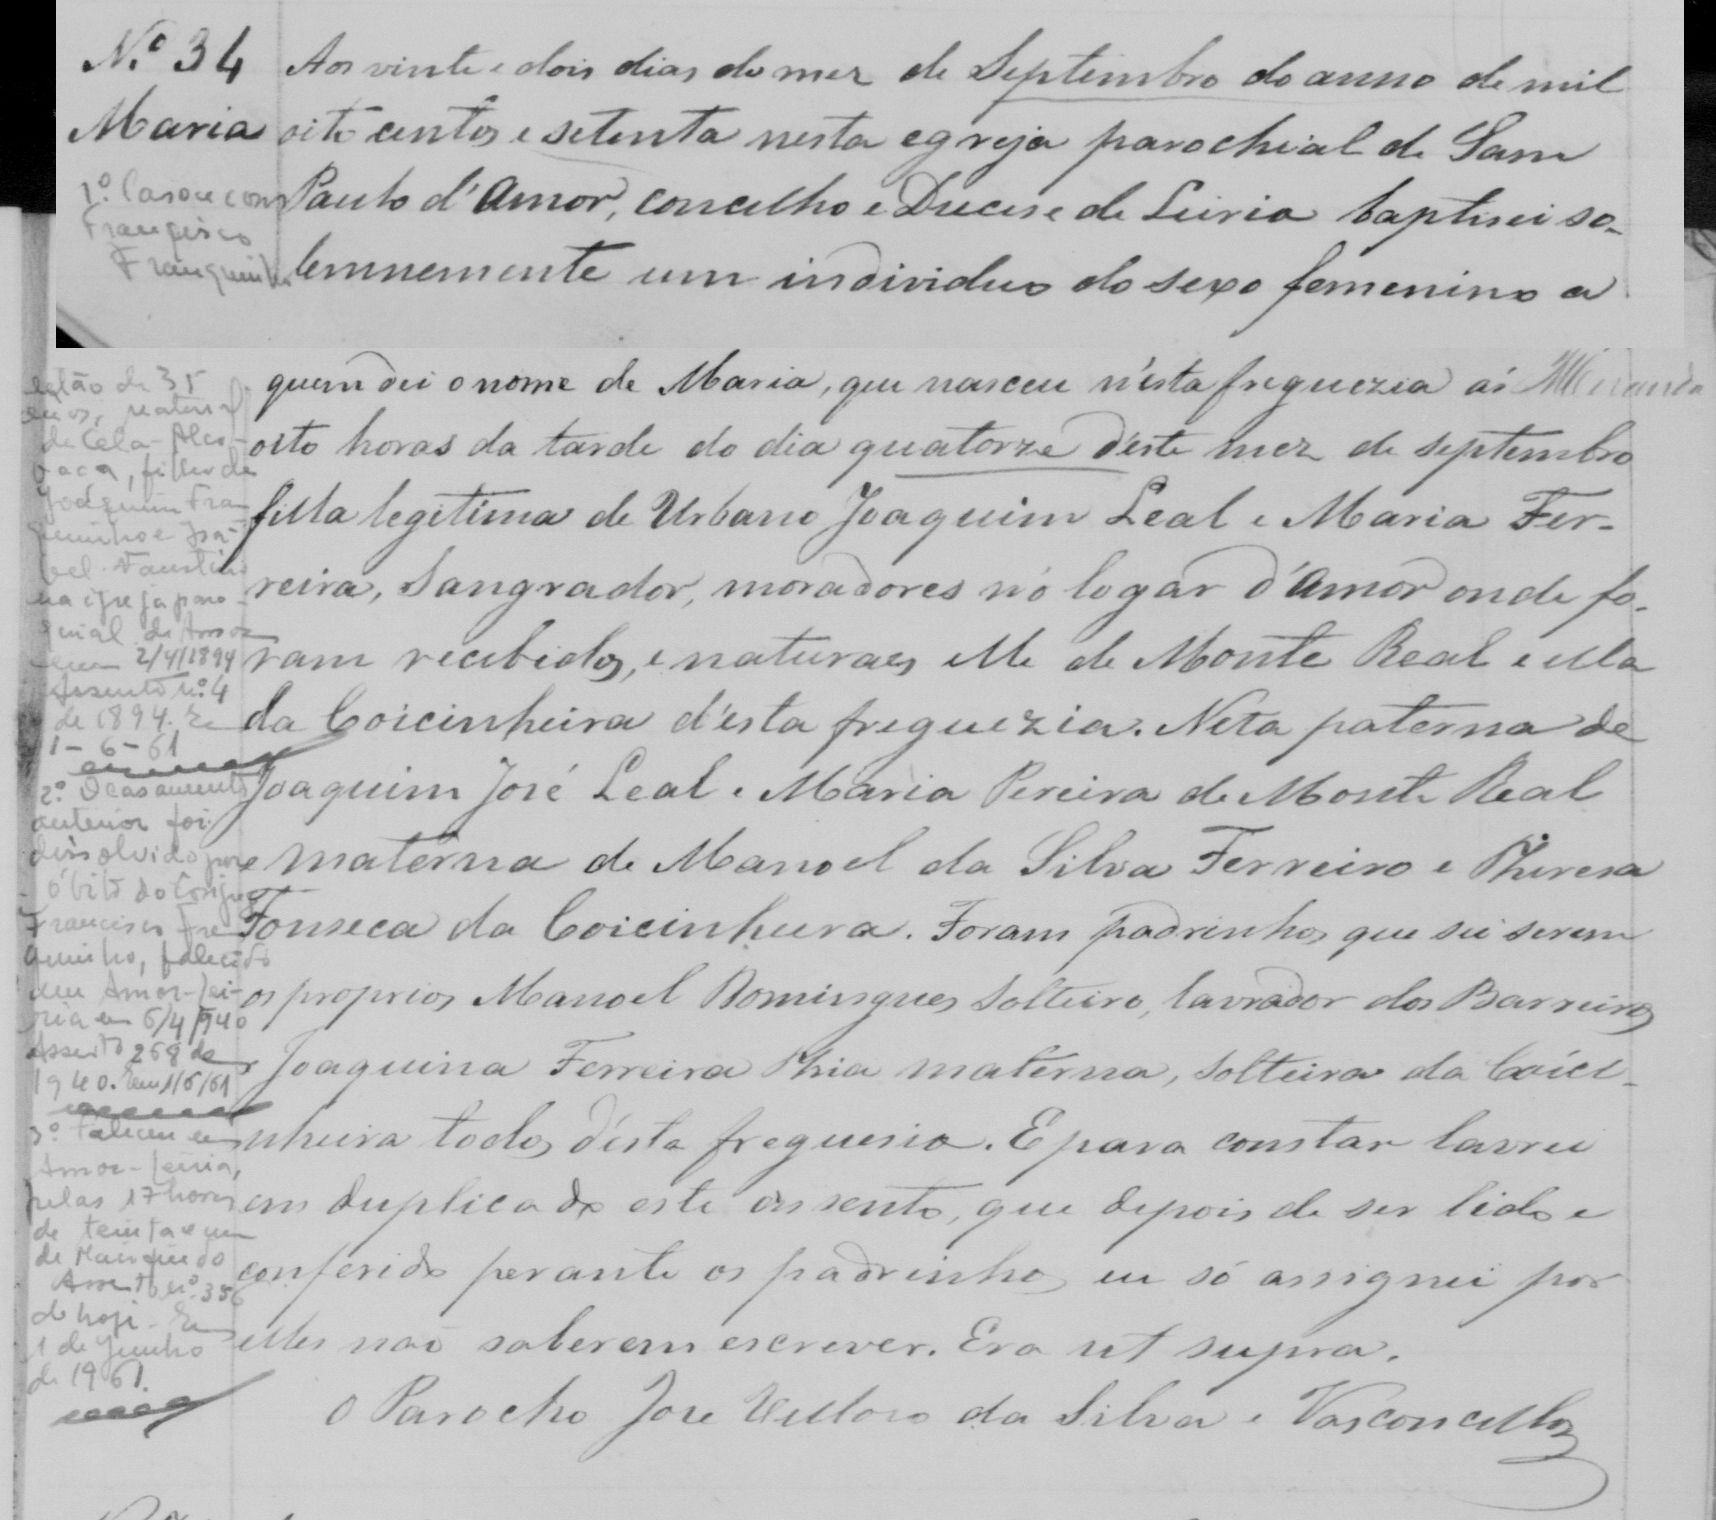 Nº 34
Maria
Aos vinte e dois dias do mez de Septembro do anno de mil
oito centos e setenta nesta egreja parochial de Sam
Paulo d'Amor, concelho e Diocese de Leiria baptisei so-
lemnemente um individuo do sexo femenino a
quem dei o nome de Maria, que nasceu n'esta freguezia ás
oito horas da tarde do dia quatorze d'este mez de septembro
filha legitima de Urbano Joaquim Leal e Maria Fer-
reira, Sangrador, moradores nó logar d'Amor onde fo-
ram recebidos, e naturaes elle de Monte Real e ella
da Coicinheira d'esta freguezia. Neta paterna de
Joaquim José Leal e Maria Pereira de Monte Real
e materna de Manoel da Silva Ferreiro e Theresa
Fonseca da Coicinheira. Foram padrinhos que sei serem
os proprios Manoel Domingues solteiro, lavrador dos Barreiros
e Joaquina Ferreira thia materna, solteira da Coici-
nheira todos d'esta freguesia. E para constar lavrei
em duplicado este assento, que depois de ser lido e
conferido perante os padrinhos eu só assignei por
elles não saberem escrever. Era ut supra.
O Parocho José Velloso da Silva e Vasconcellos
1º. Casou com
Francisco
Franquinho
de 35
anos, natural
de Cela-Alco-
baça, filho de
Joaquim Fra-
quinho e Isa-
bel Faustino
na igreja paro-
quial de Amor
em 2/4/1894
Assento nº. 4
de 1894. Em
1-6-61
2º. O casamento
anterior foi
dissolvido por
óbito do conjuge
Francisco Fra
quinho, falecido
em Amor-Lei-
ria em 6/4/940
Assento 268 de
1940. Em 1/6/61
3º. Faleceu em
Amor-Leiria,
pelas 17 horas
de trinta e um
de Maio findo
Assento nº. 356
de hoje. Em
1 de Junho
de 1961.